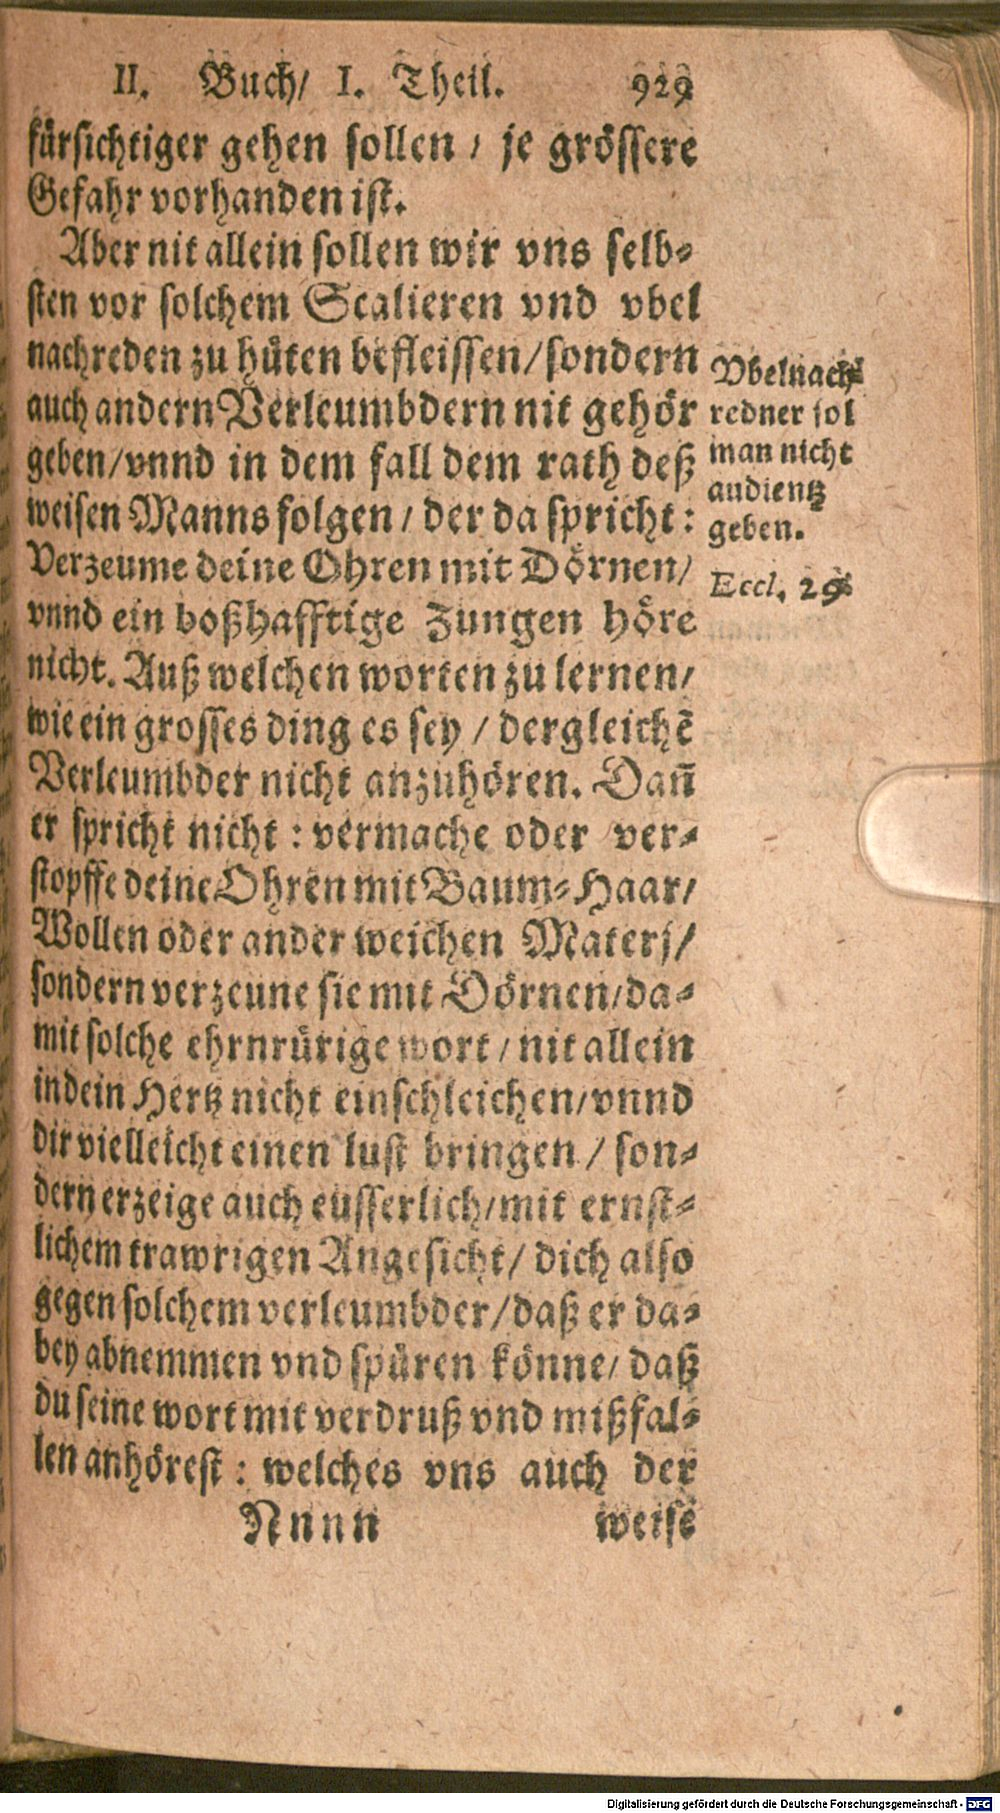 II. Buch/ I. Theil. 929
fürsichtiger gehen sollen / je grössere
Gefahr vorhanden ist.
Aber nit allein sollen wir vns selb-
sten vor solchem Scalieren vnd vbel
nachreden zu hüten befleissen/sondern
auch andern Verleumbdern nit gehör
geben/vnnd in dem fall dem rath deß
weisen Manns folgen / der da spricht:
Verzeume deine Ohren mit Dörnen/
vnnd ein boßhafftige Zungen höre
nicht. Auß welchen worten zu lernen/
wie ein grosses ding es sey / dergleichẽ
Verleumbder nicht anzuhören. Dañ
er spricht nicht : vermache oder ver-
stopffe deine Ohren mit Baum-Haar/
Wollen oder ander weichen Materj/
sondern verzeune sie mit Dörnen/da-
mit solche ehrnrürige wort / nit allein
in dein Hertz nicht einschleichen/vnnd
dir vielleicht einen lust bringen / son-
dern erzeige auch eusserlich/mit ernst-
lichem trawrigen Angesicht/ dich also
gegen solchem verleumbder/daß er da-
bey abnemmen vnd spüren könne/ daß
du seine wort mit verdruß vnd mißfal-
len anhörest : welches vns auch der
Nnnn weise
Vbelnach-
redner sol
man nicht
audientz
geben.
Eccl. 28
Digitalisierung gefördert durch die Deutsche Forschungsgemeinschaft - DFG